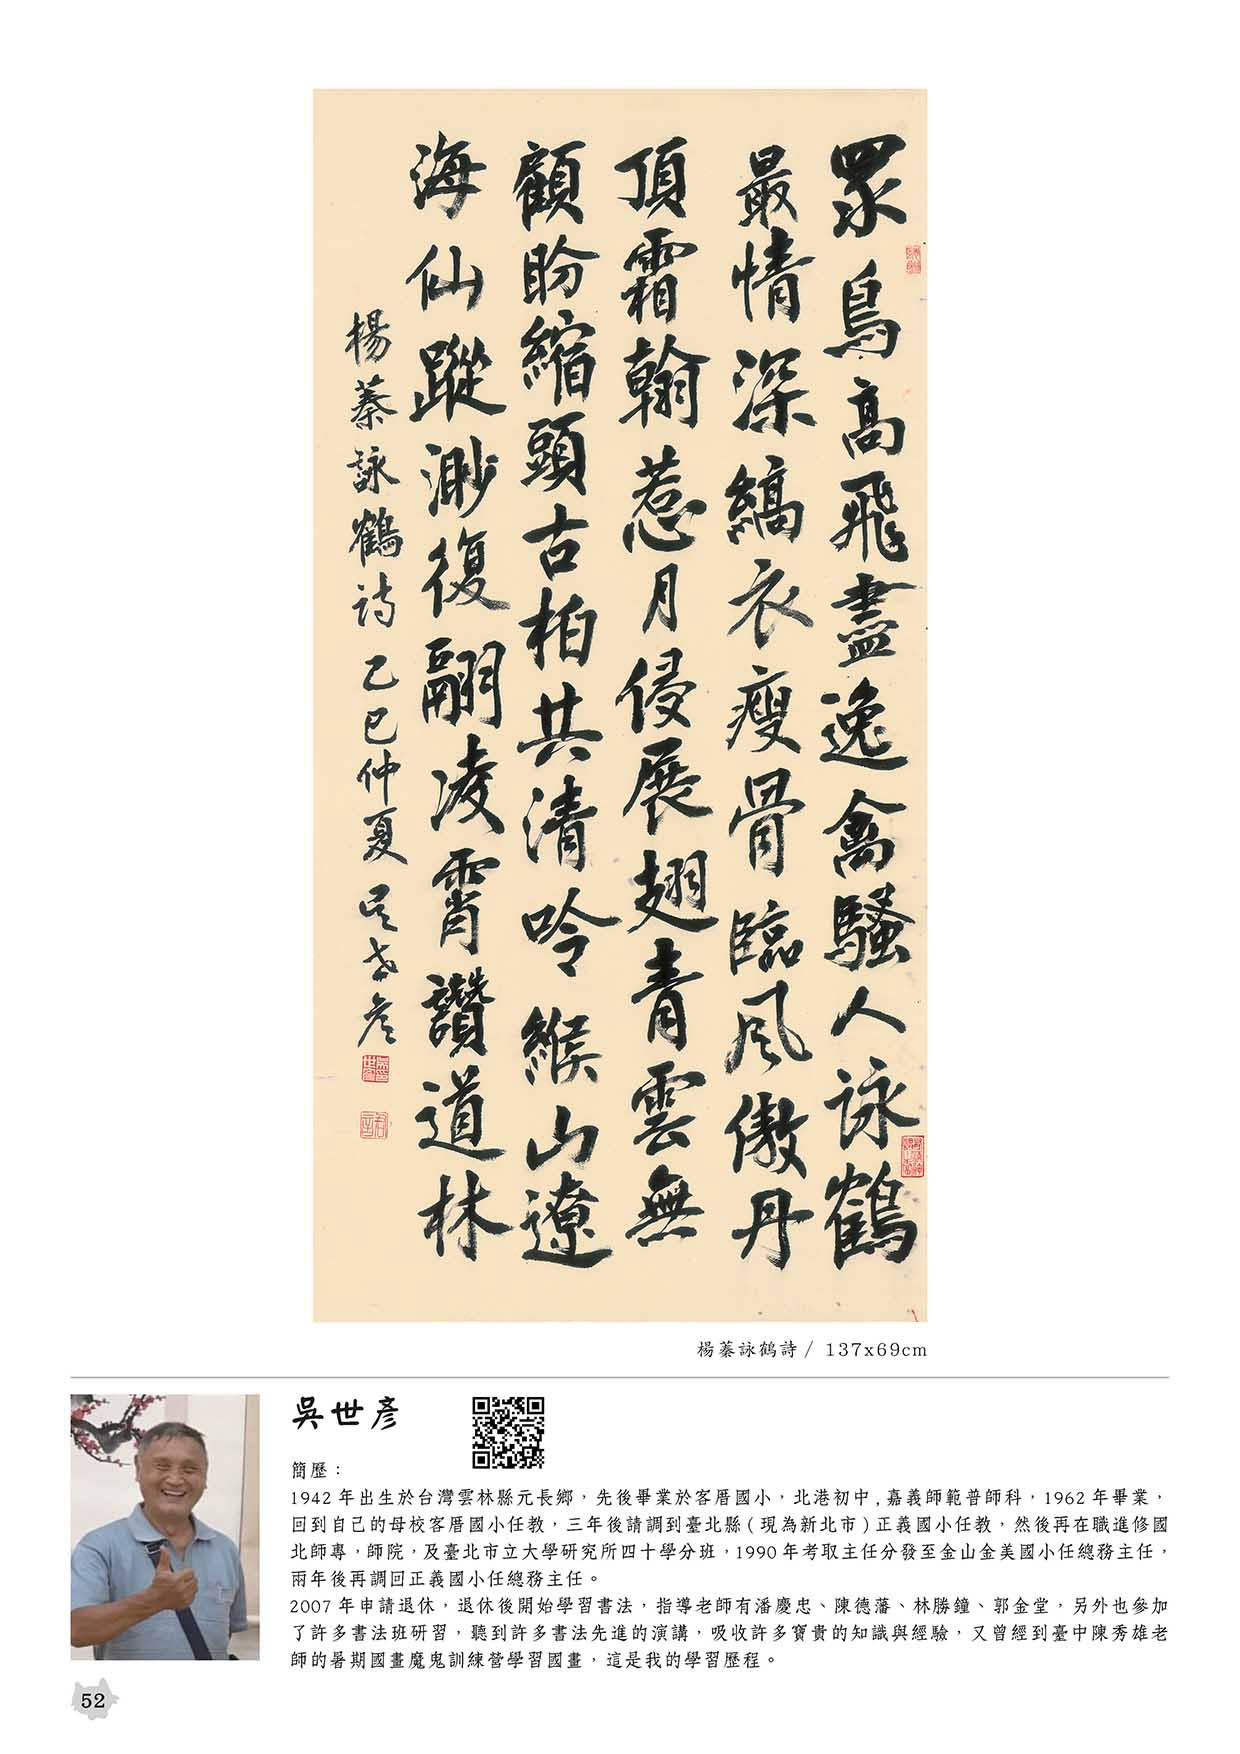 眾鳥高飛盡逸禽騷人詠鶴
最情深縞衣瘦骨臨風傲丹
頂霜翰惹月侵展翅青雲無
顧盼縮頭古柏共清吟緱山遼
海仙蹤渺復翮凌霄讚道林
楊蓁詠鶴詩 乙巳仲夏 吳世彥
楊蓁詠鶴詩 / 137x69cm
吳世彥
簡歷：
1942 年出生於台灣雲林縣元長鄉，先後畢業於客厝國小，北港初中,嘉義師範普師科，1962 年畢業，
回到自己的母校客厝國小任教，三年後請調到臺北縣(現為新北市)正義國小任教，然後再在職進修國
北師專，師院，及臺北市立大學研究所四十學分班，1990 年考取主任分發至金山金美國小任總務主任，
兩年後再調回正義國小任總務主任。
2007 年申請退休，退休後開始學習書法，指導老師有潘慶忠、陳德藩、林勝鐘、郭金堂，另外也參加
了許多書法班研習，聽到許多書法先進的演講，吸收許多寶貴的知識與經驗，又曾經到臺中陳秀雄老
師的暑期國畫魔鬼訓練營學習國畫，這是我的學習歷程。
52